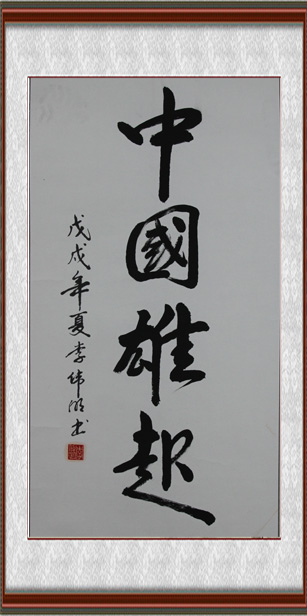 中國雄起
戊戌年夏李伟明书